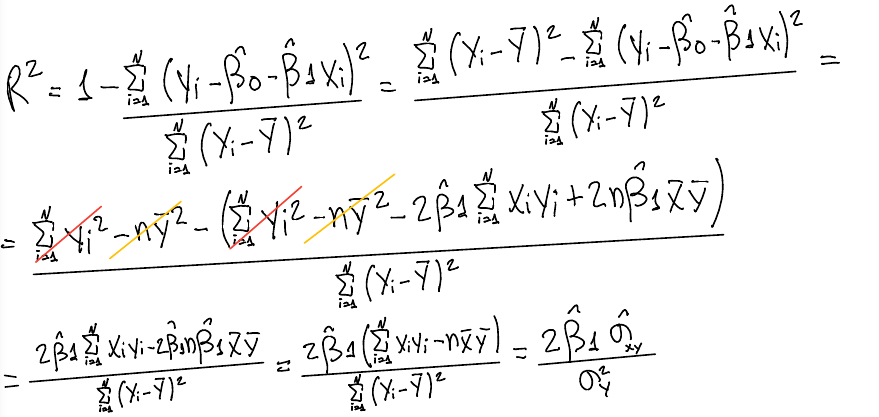 R² = 1 - \frac{\sum_{i=1}^{N} (y_i - \hat{β}_0 - \hat{β}_1 x_i)^2}{\sum_{i=1}^{N} (y_i - \bar{y})^2} = \frac{\sum_{i=1}^{N} (y_i - \bar{y})^2 - \sum_{i=1}^{N} (y_i - \hat{β}_0 - \hat{β}_1 x_i)^2}{\sum_{i=1}^{N} (y_i - \bar{y})^2} =
= \frac{\sum_{i=1}^{N} y_i^2 - n\bar{y}^2 - (\sum_{i=1}^{N} y_i^2 - n\bar{y}^2 - 2\hat{β}_1 \sum_{i=1}^{N} x_i y_i + 2n\hat{β}_1 \bar{x}\bar{y})}{\sum_{i=1}^{N} (y_i - \bar{y})^2}
= \frac{2\hat{β}_1 \sum_{i=1}^{N} x_i y_i - 2\hat{β}_1 n\hat{β}_1 \bar{x}\bar{y}}{\sum_{i=1}^{N} (y_i - \bar{y})^2} = \frac{2\hat{β}_1 (\sum_{i=1}^{N} x_i y_i - n\bar{x}\bar{y})}{\sum_{i=1}^{N} (y_i - \bar{y})^2} = \frac{2\hat{β}_1 \hat{σ}_{xy}}{σ_y^2}